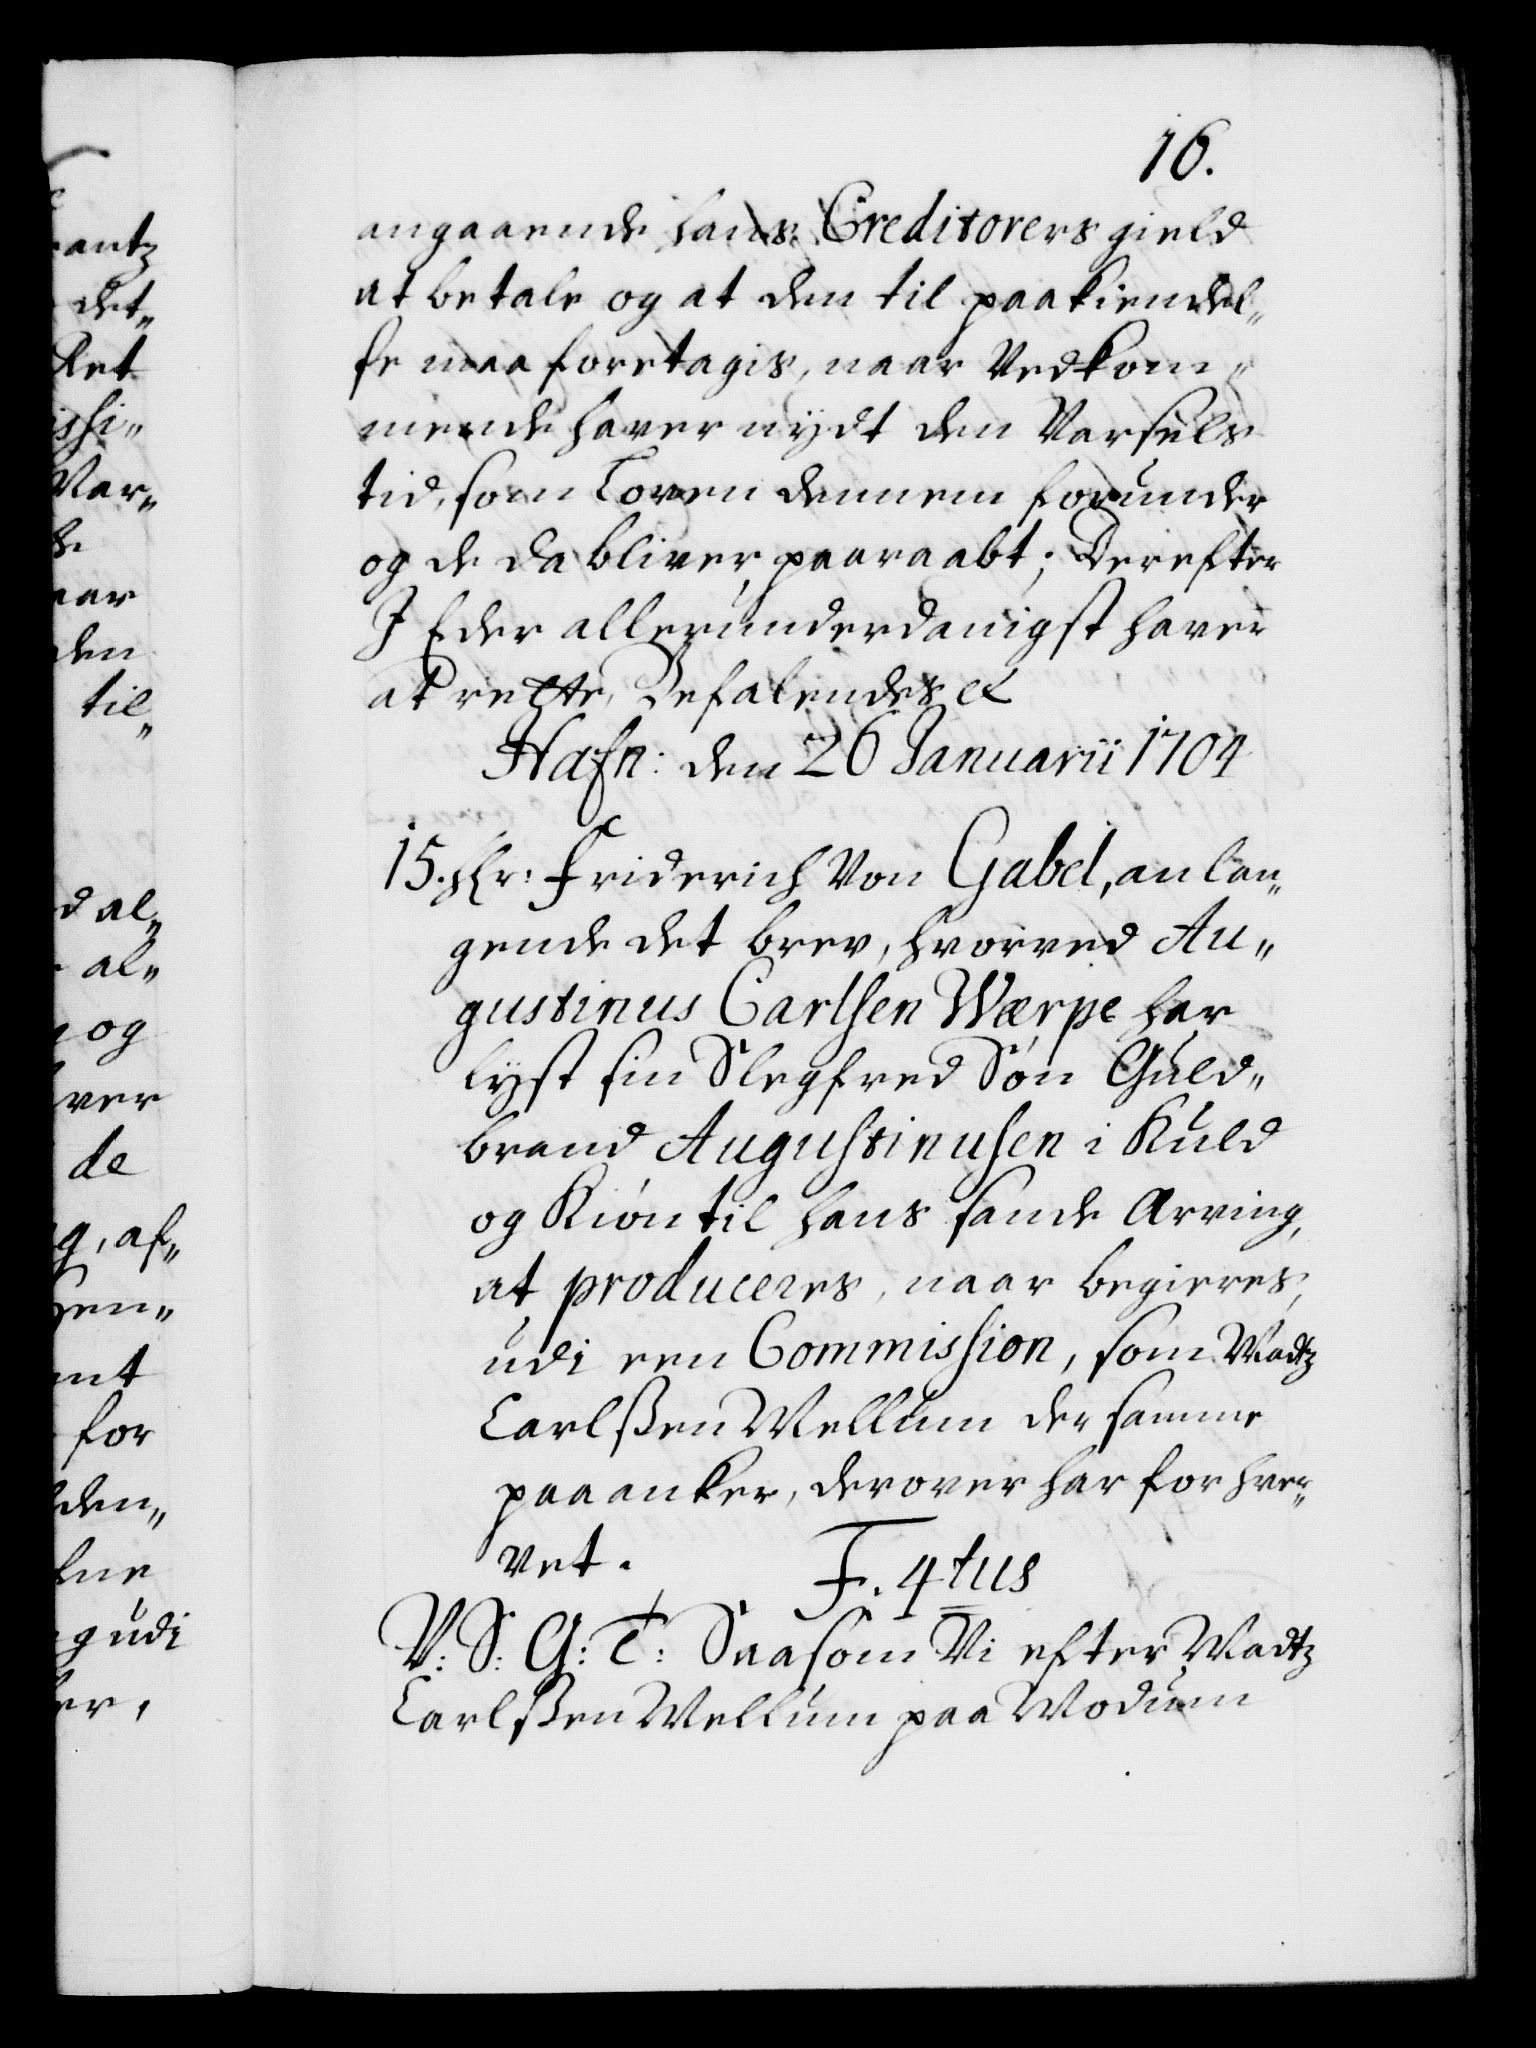 16.
angaaende hans Creditorers gield
at betale og at den til paakiendel„
se maa foretagis, naar Vedkom„
mende haver nydt den Varsels
tid, som Loven dennem forunder
og de da bliver paaraabt; Derefter
I Eder allerunderdanigst haver
at rette, Befalendes et
Hafn: den 26 Januarii 1704
15. Hr: Friderich Von Gabel, anlan„
gende det brev, hvorved Au„
gustinus Carlsen Wærpe har
lyst sin Slegfred Søn Guld„
brand Augustinusen i Kuld
og Kiøn til hans sande Arving,
at produceres, naar begieres,
udi een Commission, som Madtz
Carlssen Mellum der samme
paaanker, derover har forhver„
vet.
F. 4tus
V: S: G: T: Saasom Vi efter Madtz
Carlssen Mellum paa Modum
antz
det„
Ret
issi„
Var„
aar
den
til„
d al„
al„
og
ver
de
g, af„
en„
nt
for
den„
lne
g udi
er,